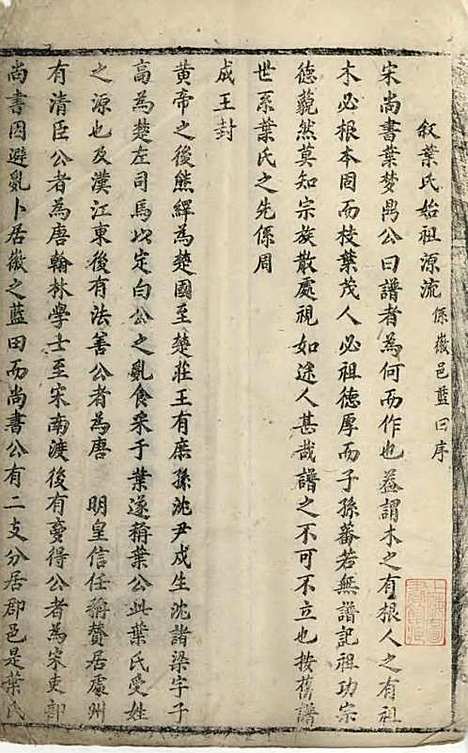 叙葉氏始祖源流係徽邑藍田序
宋尚書葉夢鼎公曰譜者為何而作也蓋謂木之有根人之有祖
木必根本固而枝葉茂人必祖德厚而子孫蕃若無譜記祖功宗
德藐然莫知宗族散處視如途人甚哉譜之不可不立也按舊譜
世系葉氏之先係周
成王封
黄帝之後熊繹為楚國至楚莊王有庶孫沈尹戍生沈諸梁字子
高為楚左司馬以定白公之亂食采于葉遂稱葉公此葉氏受姓
之源也及漢江東後有法善公者為唐 明皇信任稱贊居處州
有清臣公者為唐翰林學士至宋南渡後有夢得公者為宋吏部
尚書因避亂卜居徽之藍田而尚書公有二支分居郡邑是葉氏